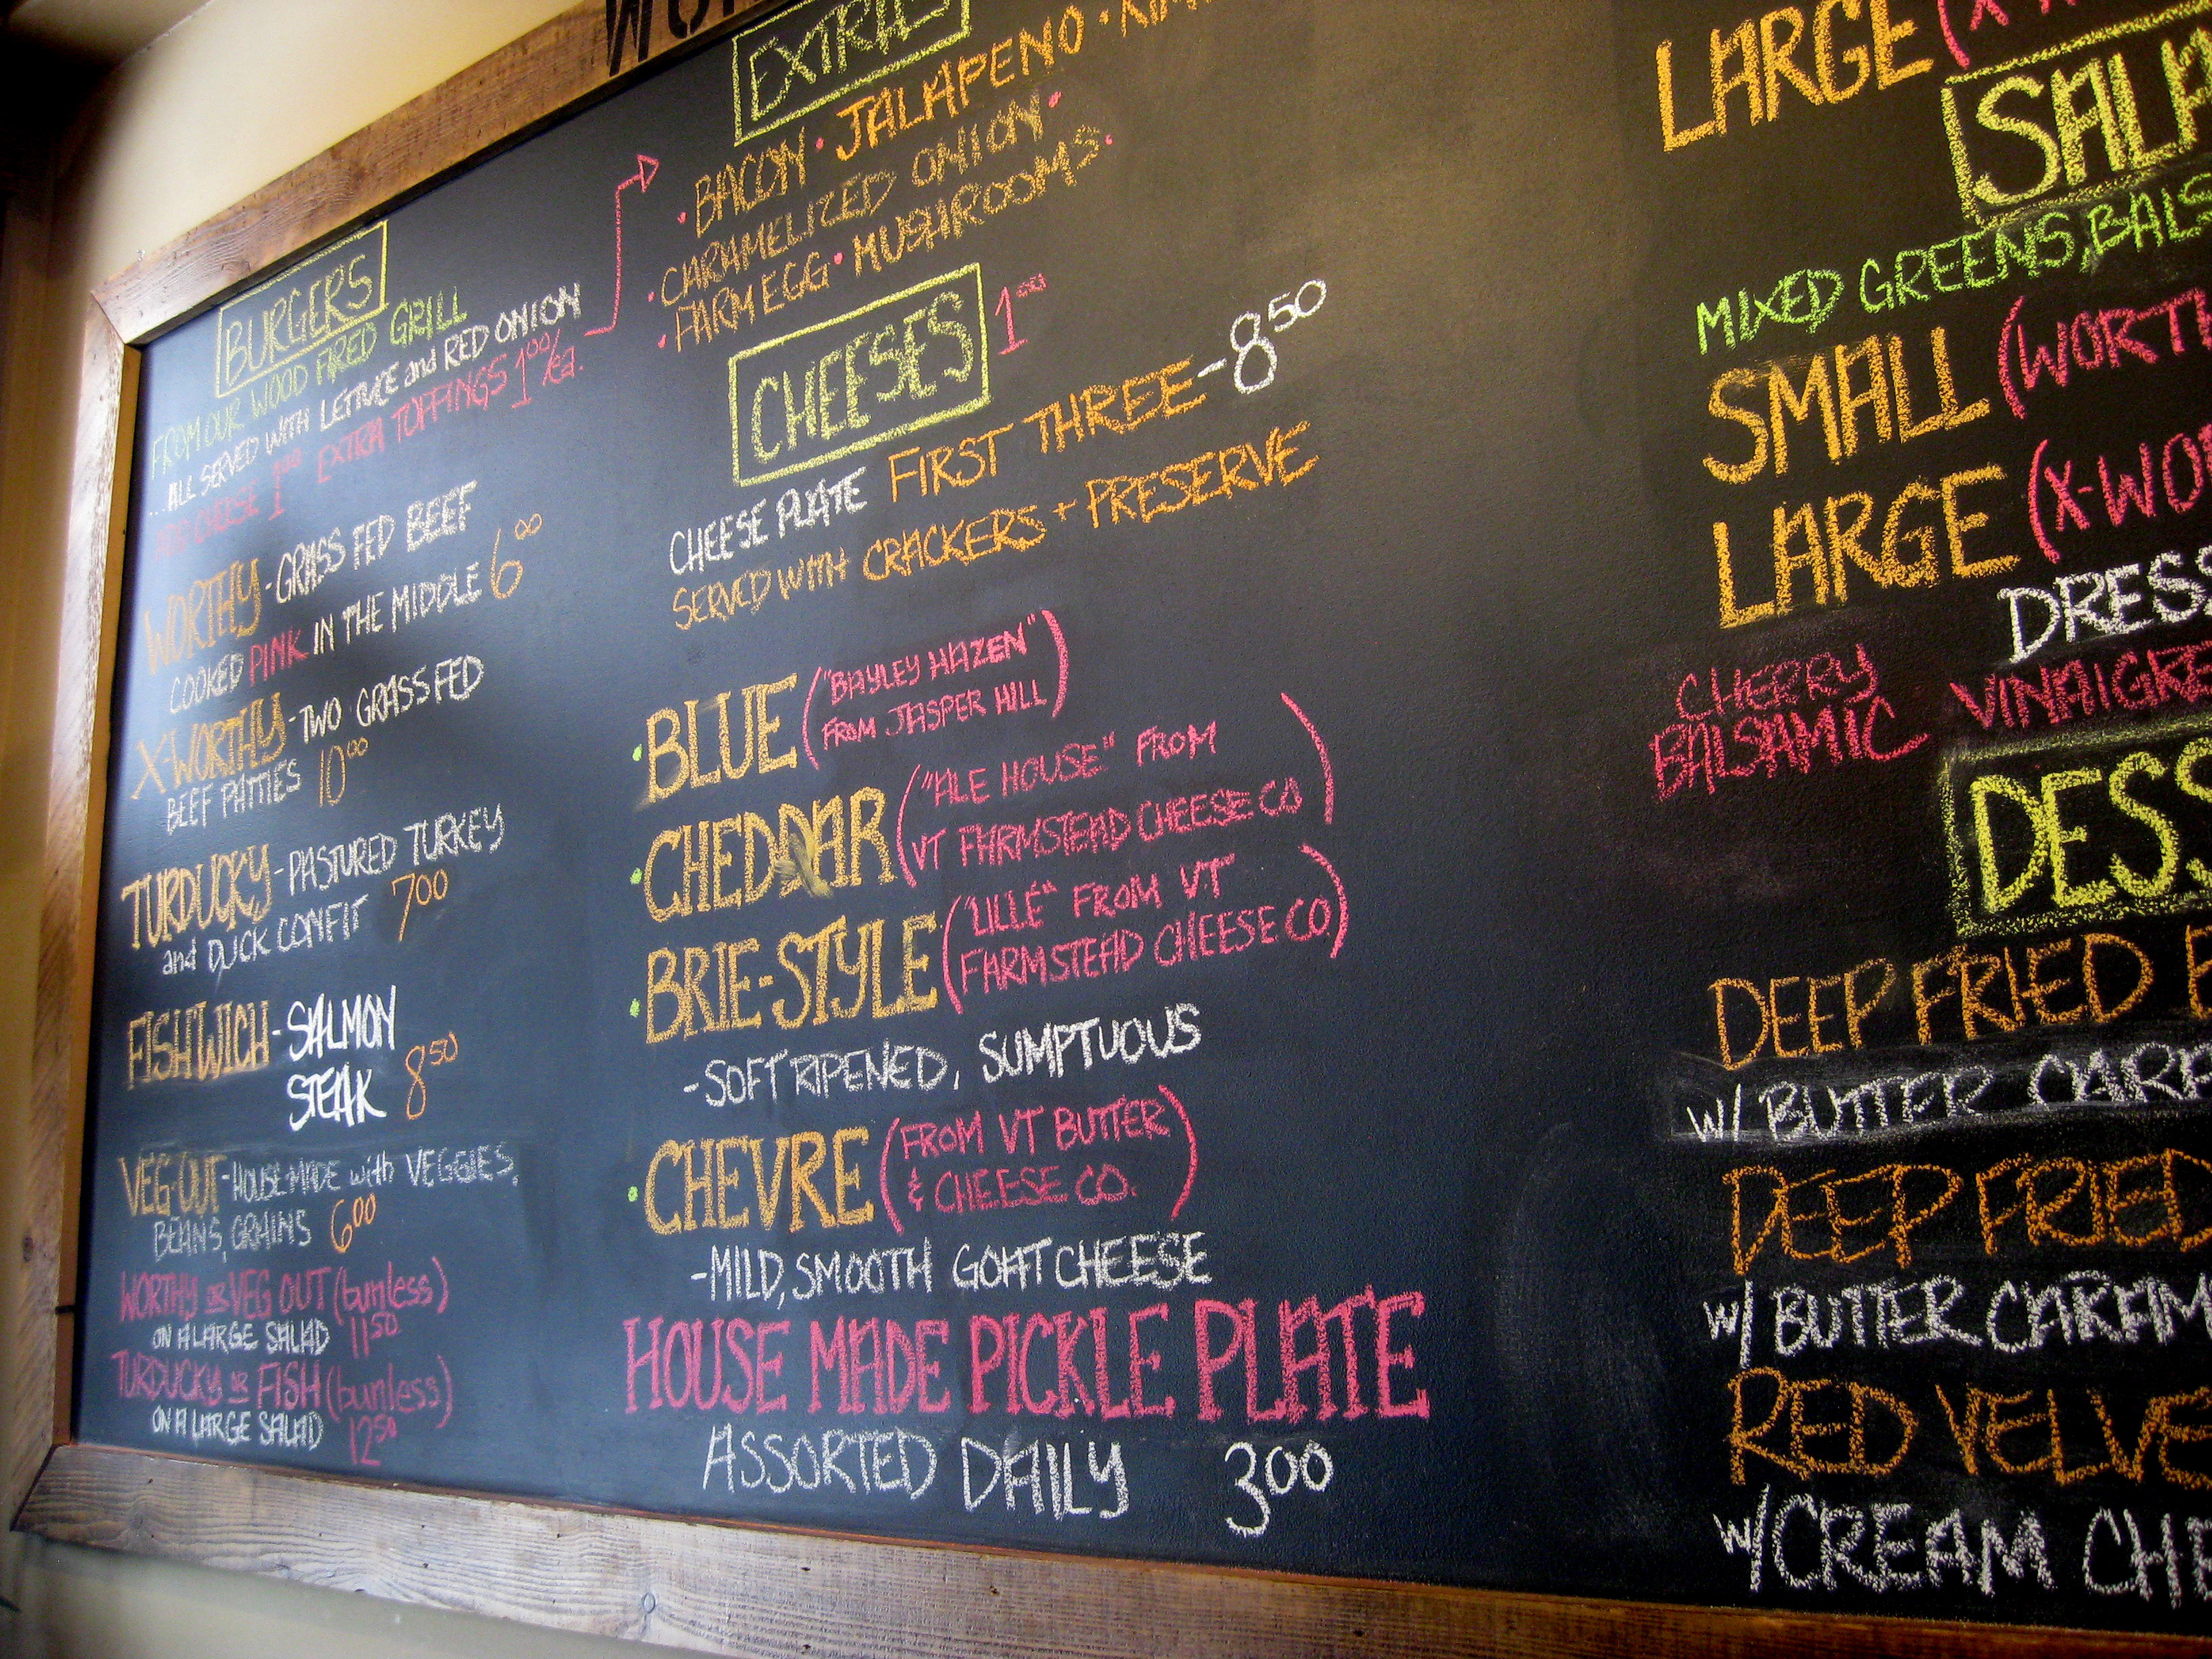 BURGERS
FROM OUR WOOD FIRED GRILL
...ALL SERVED WITH LETTUCE and RED ONION
ADD CHEESE 1.00 EXTRA TOPPINGS 1.00/ea.
WORTHY - GRASS FED BEEF
COOKED PINK IN THE MIDDLE 6.00
X-WORTHY - TWO GRASS FED
BEEF PATTIES 10.00
TURDUCKY - PASTURED TURKEY
and DUCK CONFIT 7.00
FISHWICH - SALMON
STEAK 8.50
VEG-OUT - HOUSE MADE with VEGGIES,
BEANS, GRAINS 6.00
WORTHY OR VEG OUT (bunless)
ON A LARGE SALAD 11.50
TURDUCKY OR FISH (bunless)
ON A LARGE SALAD 12.50
• BACON • JALAPENO •
• CARAMELIZED ONION •
• FARM EGG • MUSHROOMS •
CHEESES 1.00
CHEESE PLATE FIRST THREE - 8.50
SERVED WITH CRACKERS + PRESERVE
• BLUE ("BAYLEY HAZEN"
FROM JASPER HILL)
• CHEDDAR ("ALE HOUSE" FROM
VT FARMSTEAD CHEESE CO)
• BRIE-STYLE ("LILLÉ" FROM VT
FARMSTEAD CHEESE CO)
- SOFT RIPENED, SUMPTUOUS
• CHEVRE (FROM VT BUTTER
& CHEESE CO.)
- MILD, SMOOTH GOAT CHEESE
HOUSE MADE PICKLE PLATE
ASSORTED DAILY 3.00
LARGE
MIXED GREENS,
SMALL
LARGE
CHERRY
BALSAMIC
DEEP FRIED
W/ BUTTER
DEEP FRIED
W/ BUTTER
RED
W/ CREAM